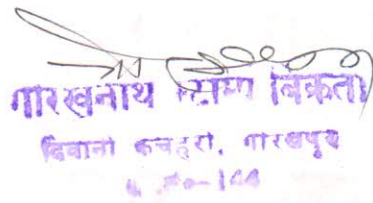 गोरखनाथ स्टाम्प विक्रेता
दिवानी कचहरी, गोरखपुर
144